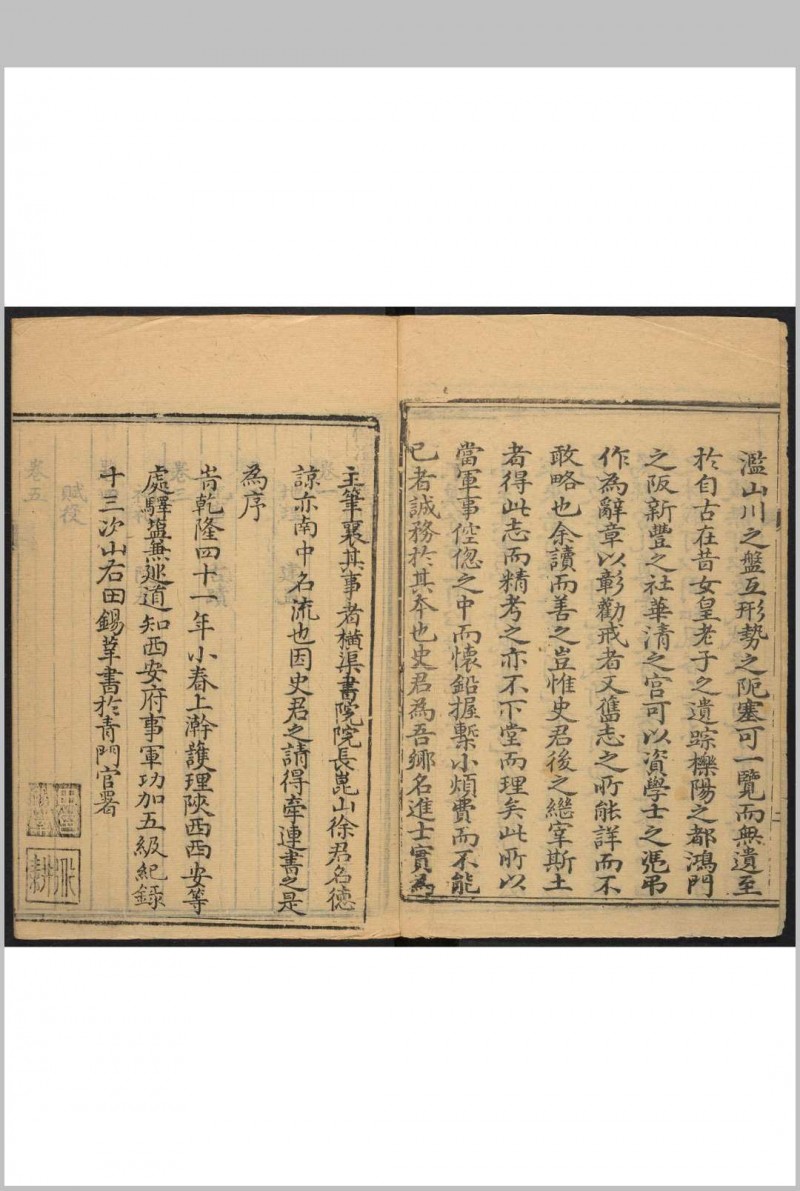 濫山川之盤互形勢之阨塞可一覽而無遺至
於自古在昔女皇老子之遺踪櫟陽之都鴻門
之阪新豐之社華清之宮可以資學士之憑弔
作為辭章以彰勸戒者又舊志之所能詳而不
敢略也余讀而善之豈惟史君後之繼宰斯土
者得此志而精考之亦不下堂而理矣此所以
當軍事倥偬之中而懷鉛握槧小煩費而不能
已者誠務於其本也史君為吾鄉名進士實為
主筆襄其事者橫渠書院院長崑山徐君名德
諒亦南中名流也因史君之請得牽連書之是
為序
旹乾隆四十一年小春上澣護理陝西西安等
處驛塩兼廵道知西安府事軍功加五級紀錄
十三次山右田錫莘書於青門官署